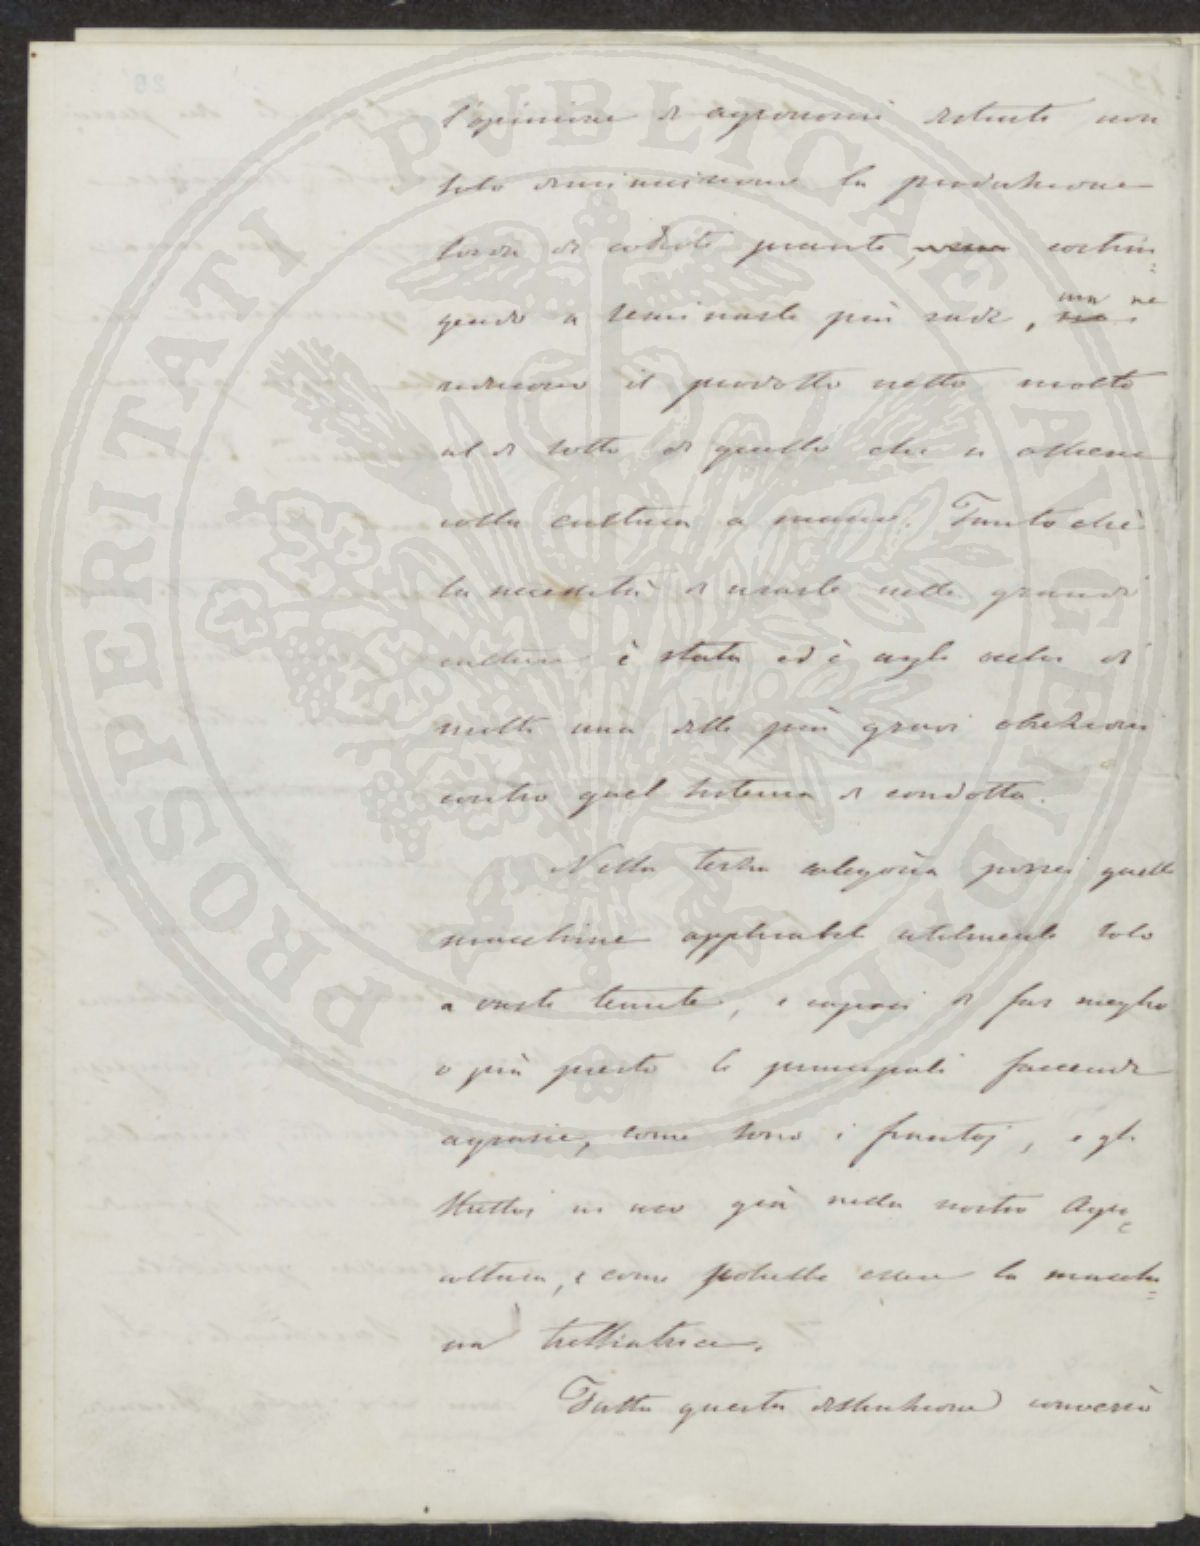 l'opinione di agronomi distinti non
solo diminuiscono la produzione
lorda di codeste piante, costrin=
gendo a seminarle più rade, ma ne
riducono il prodotto netto molto
al di sotto di quello che si ottiene
colla cultura a mano. Tanto che
la necessità di usarle nella grande
cultura è stata ed è agli occhi di
molti una delle più gravi obiezioni
contro quel sistema di condotta.
Nella terza categoria porrei quelle
macchine applicabili utilmente solo
a vaste tenute, e capaci di far meglio
o più presto le principali faccende
agrarie, come sono i frantoj, e gli
strettoj in uso già nella nostra Agri=
coltura, e come potrebbe essere la macchi=
na trebbiatrice.
Fatta questa distinzione converrà
PROSPERITATI PVBLICAE AVGENDAE